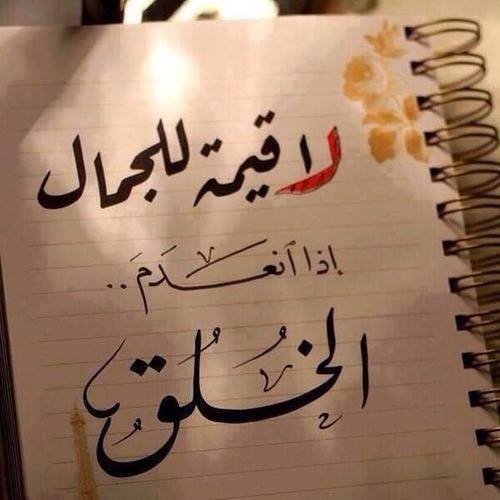 لا قيمة للجمال
إذا ٱنعدَمَ..
الخُلُقُ